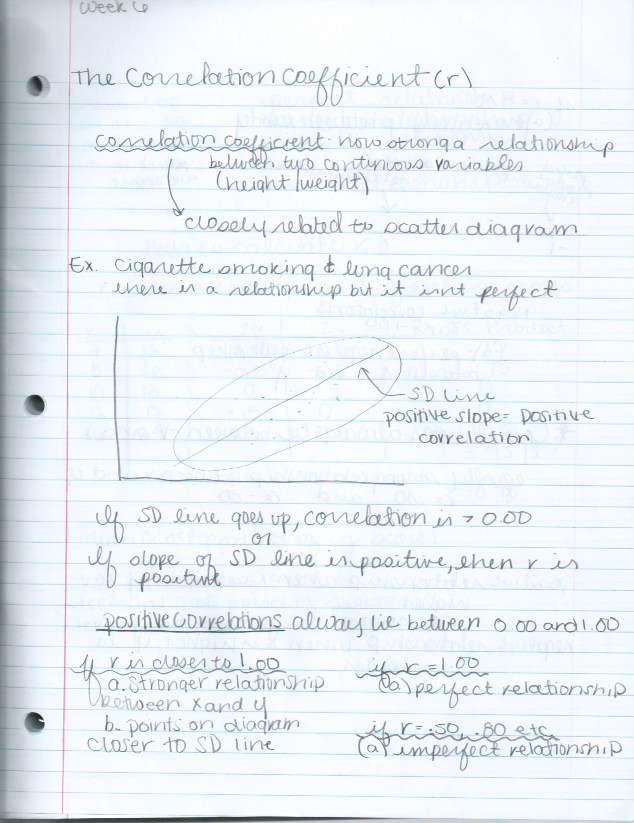 Week 6
The Correlation Coefficient (r)
correlation coefficient - how strong a relationship
between two continuous variables
(height/weight)
closely related to scatter diagram
Ex. Cigarette smoking & lung cancer
there is a relationship but it isnt perfect
SD line
positive slope = Positive
correlation
If SD line goes up, correlation is > 0.00
or
If slope of SD line is positive, then r is
positive
positive correlations always lie between 0.00 and 1.00
If r is closer to 1.00
a. Stronger relationship
between x and y
b. points on diagram
closer to SD line
if r = 1.00
(a) perfect relationship
if r = .50, .80 etc.
(a) imperfect relationship